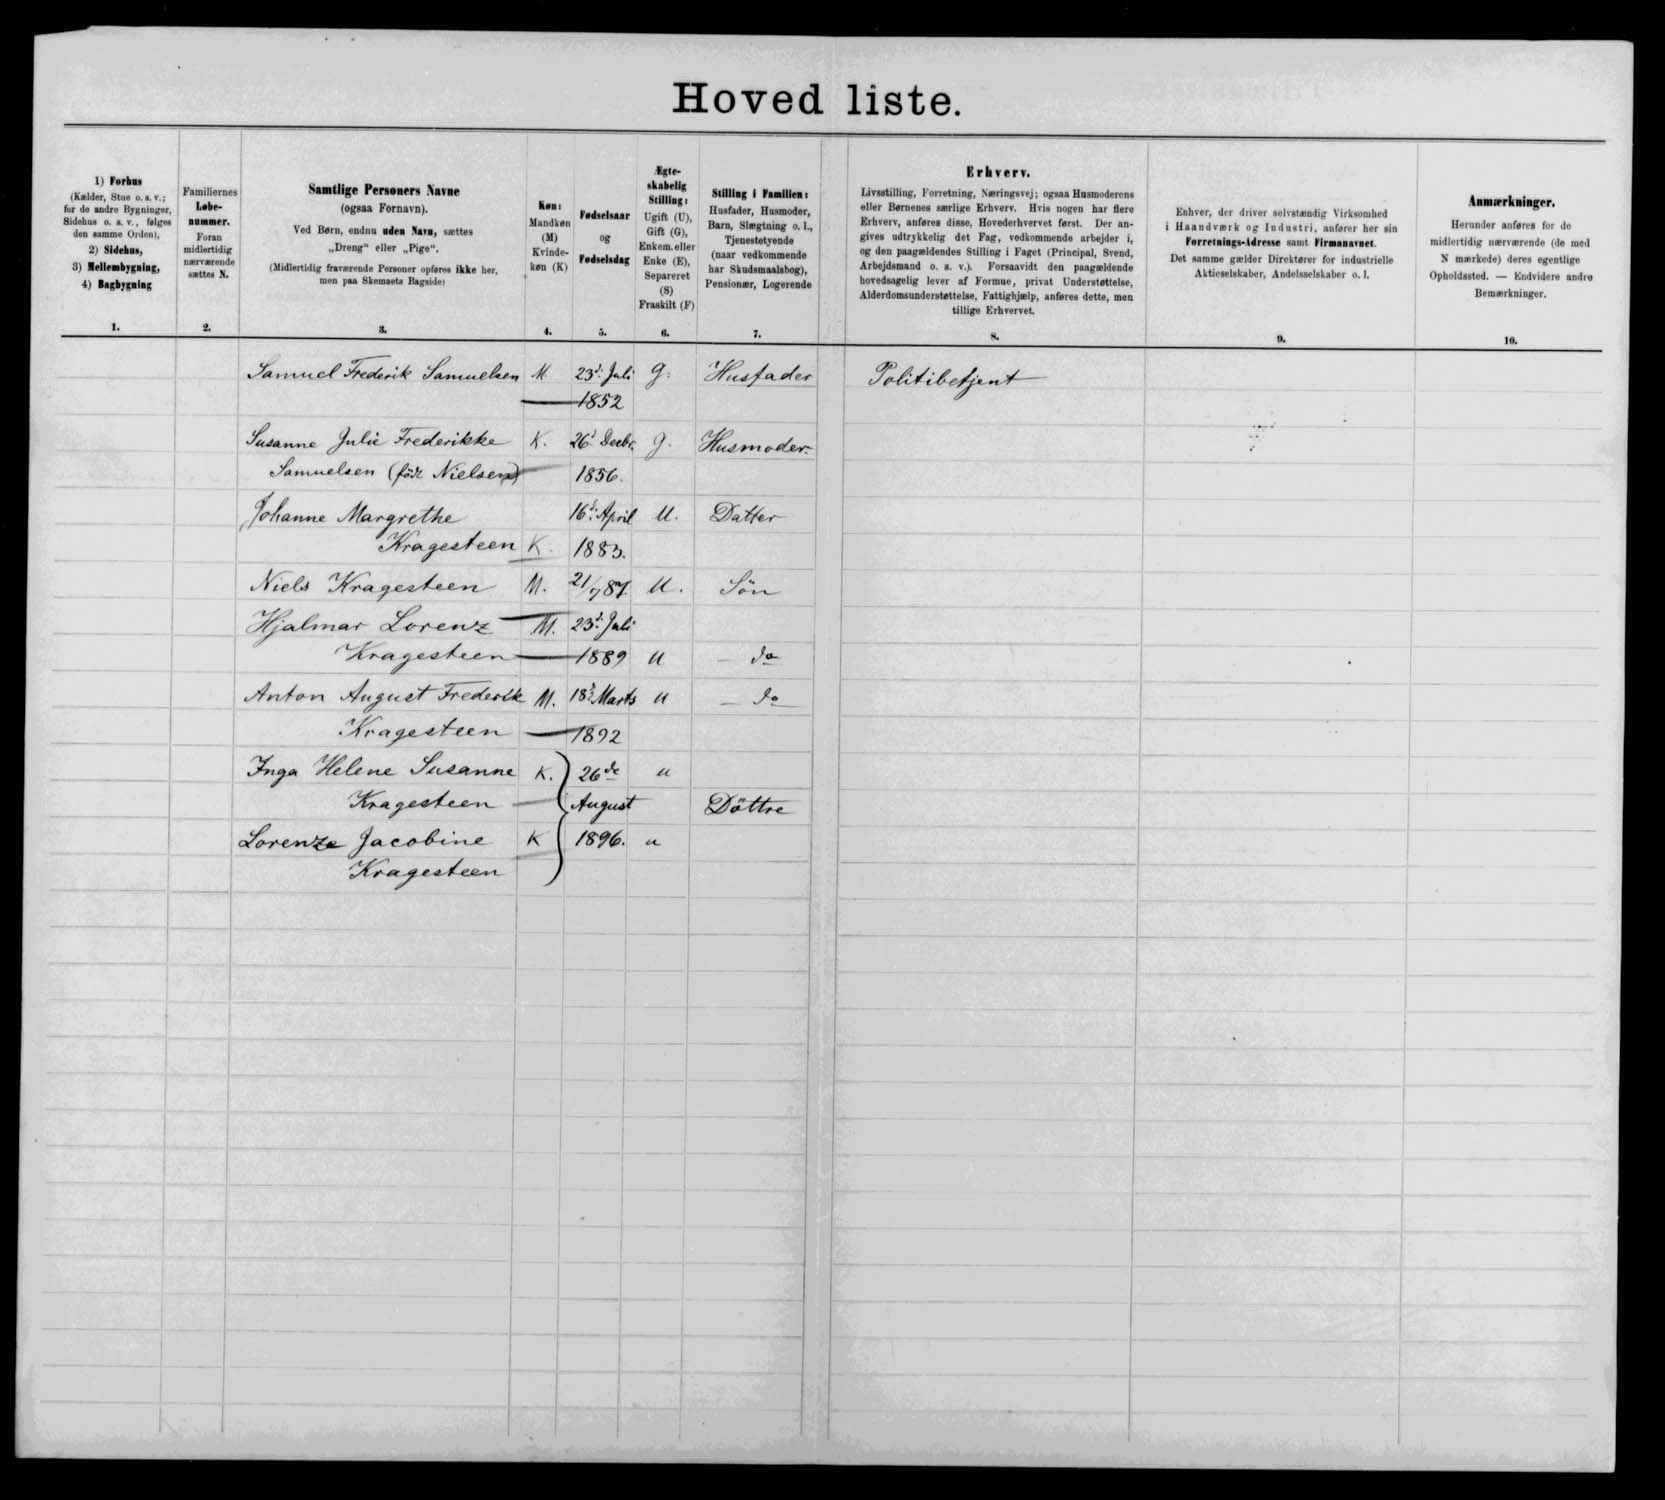 Hoved liste.
1) Forhus
(Kælder, Stue o. s. v.;
for de andre Bygninger,
Sidehus o. s. v., følges
den samme Orden),
2) Sidehus,
3) Mellembygning,
4) Bagbygning
1.
Familiernes
Løbe-
nummer.
Foran
midlertidig
nærværende
sættes N.
2.
Samtlige Personers Navne
(ogsaa Fornavn).
Ved Børn, endnu uden Navn, sættes
„Dreng“ eller „Pige“.
(Midlertidig fraværende Personer opføres ikke her,
men paa Skemaets Bagside)
3.
Køn:
Mandkøn
(M)
Kvinde-
køn (K)
4.
Fødselsaar
og
Fødselsdag
5.
Ægte-
skabelig
Stilling:
Ugift (U),
Gift (G),
Enkem. eller
Enke (E),
Separeret
(S)
Fraskilt (F)
6.
Stilling i Familien:
Husfader, Husmoder,
Barn, Slægtning o. l.,
Tjenestetyende
(naar vedkommende
har Skudsmaalsbog),
Pensionær, Logerende
7.
Erhverv.
Livsstilling, Forretning, Næringsvej; ogsaa Husmoderens
eller Børnenes særlige Erhverv. Hvis nogen har flere
Erhverv, anføres disse, Hovederhvervet først. Der an-
gives udtrykkelig det Fag, vedkommende arbejder i,
og den paagældendes Stilling i Faget (Principal, Svend,
Arbejdsmand o. s. v.). Forsaavidt den paagældende
hovedsagelig lever af Formue, privat Understøttelse,
Alderdomsunderstøttelse, Fattighjælp, anføres dette, men
tillige Erhvervet.
8.
Enhver, der driver selvstændig Virksomhed
i Haandværk og Industri, anfører her sin
Forretnings-Adresse samt Firmanavnet.
Det samme gælder Direktører for industrielle
Aktieselskaber, Andelsselskaber o. l.
9.
Anmærkninger.
Herunder anføres for de
midlertidig nærværende (de med
N mærkede) deres egentlige
Opholdssted. — Endvidere andre
Bemærkninger.
10.
Samuel Frederik Samuelsen M. 23d. Juli G. Husfader Politibetjent
1852
Susanne Julie Frederikke K. 26d. Decbr. G. Husmoder.
Samuelsen (född Nielsen) 1856.
Johanne Margrethe 16d. April U. Datter
Kragesteen K. 1883.
Niels Kragesteen M. 21/7 87. U. Sön
Hjalmar Lorenz M. 23d. Juli
Kragesteen 1889 U — do
Anton August Frederik M. 18d. Marts U — do
Kragesteen 1892
Inga Helene Susanne K. 26de U
Kragesteen August Döttre
Lorenze Jacobine K 1896. U
Kragesteen